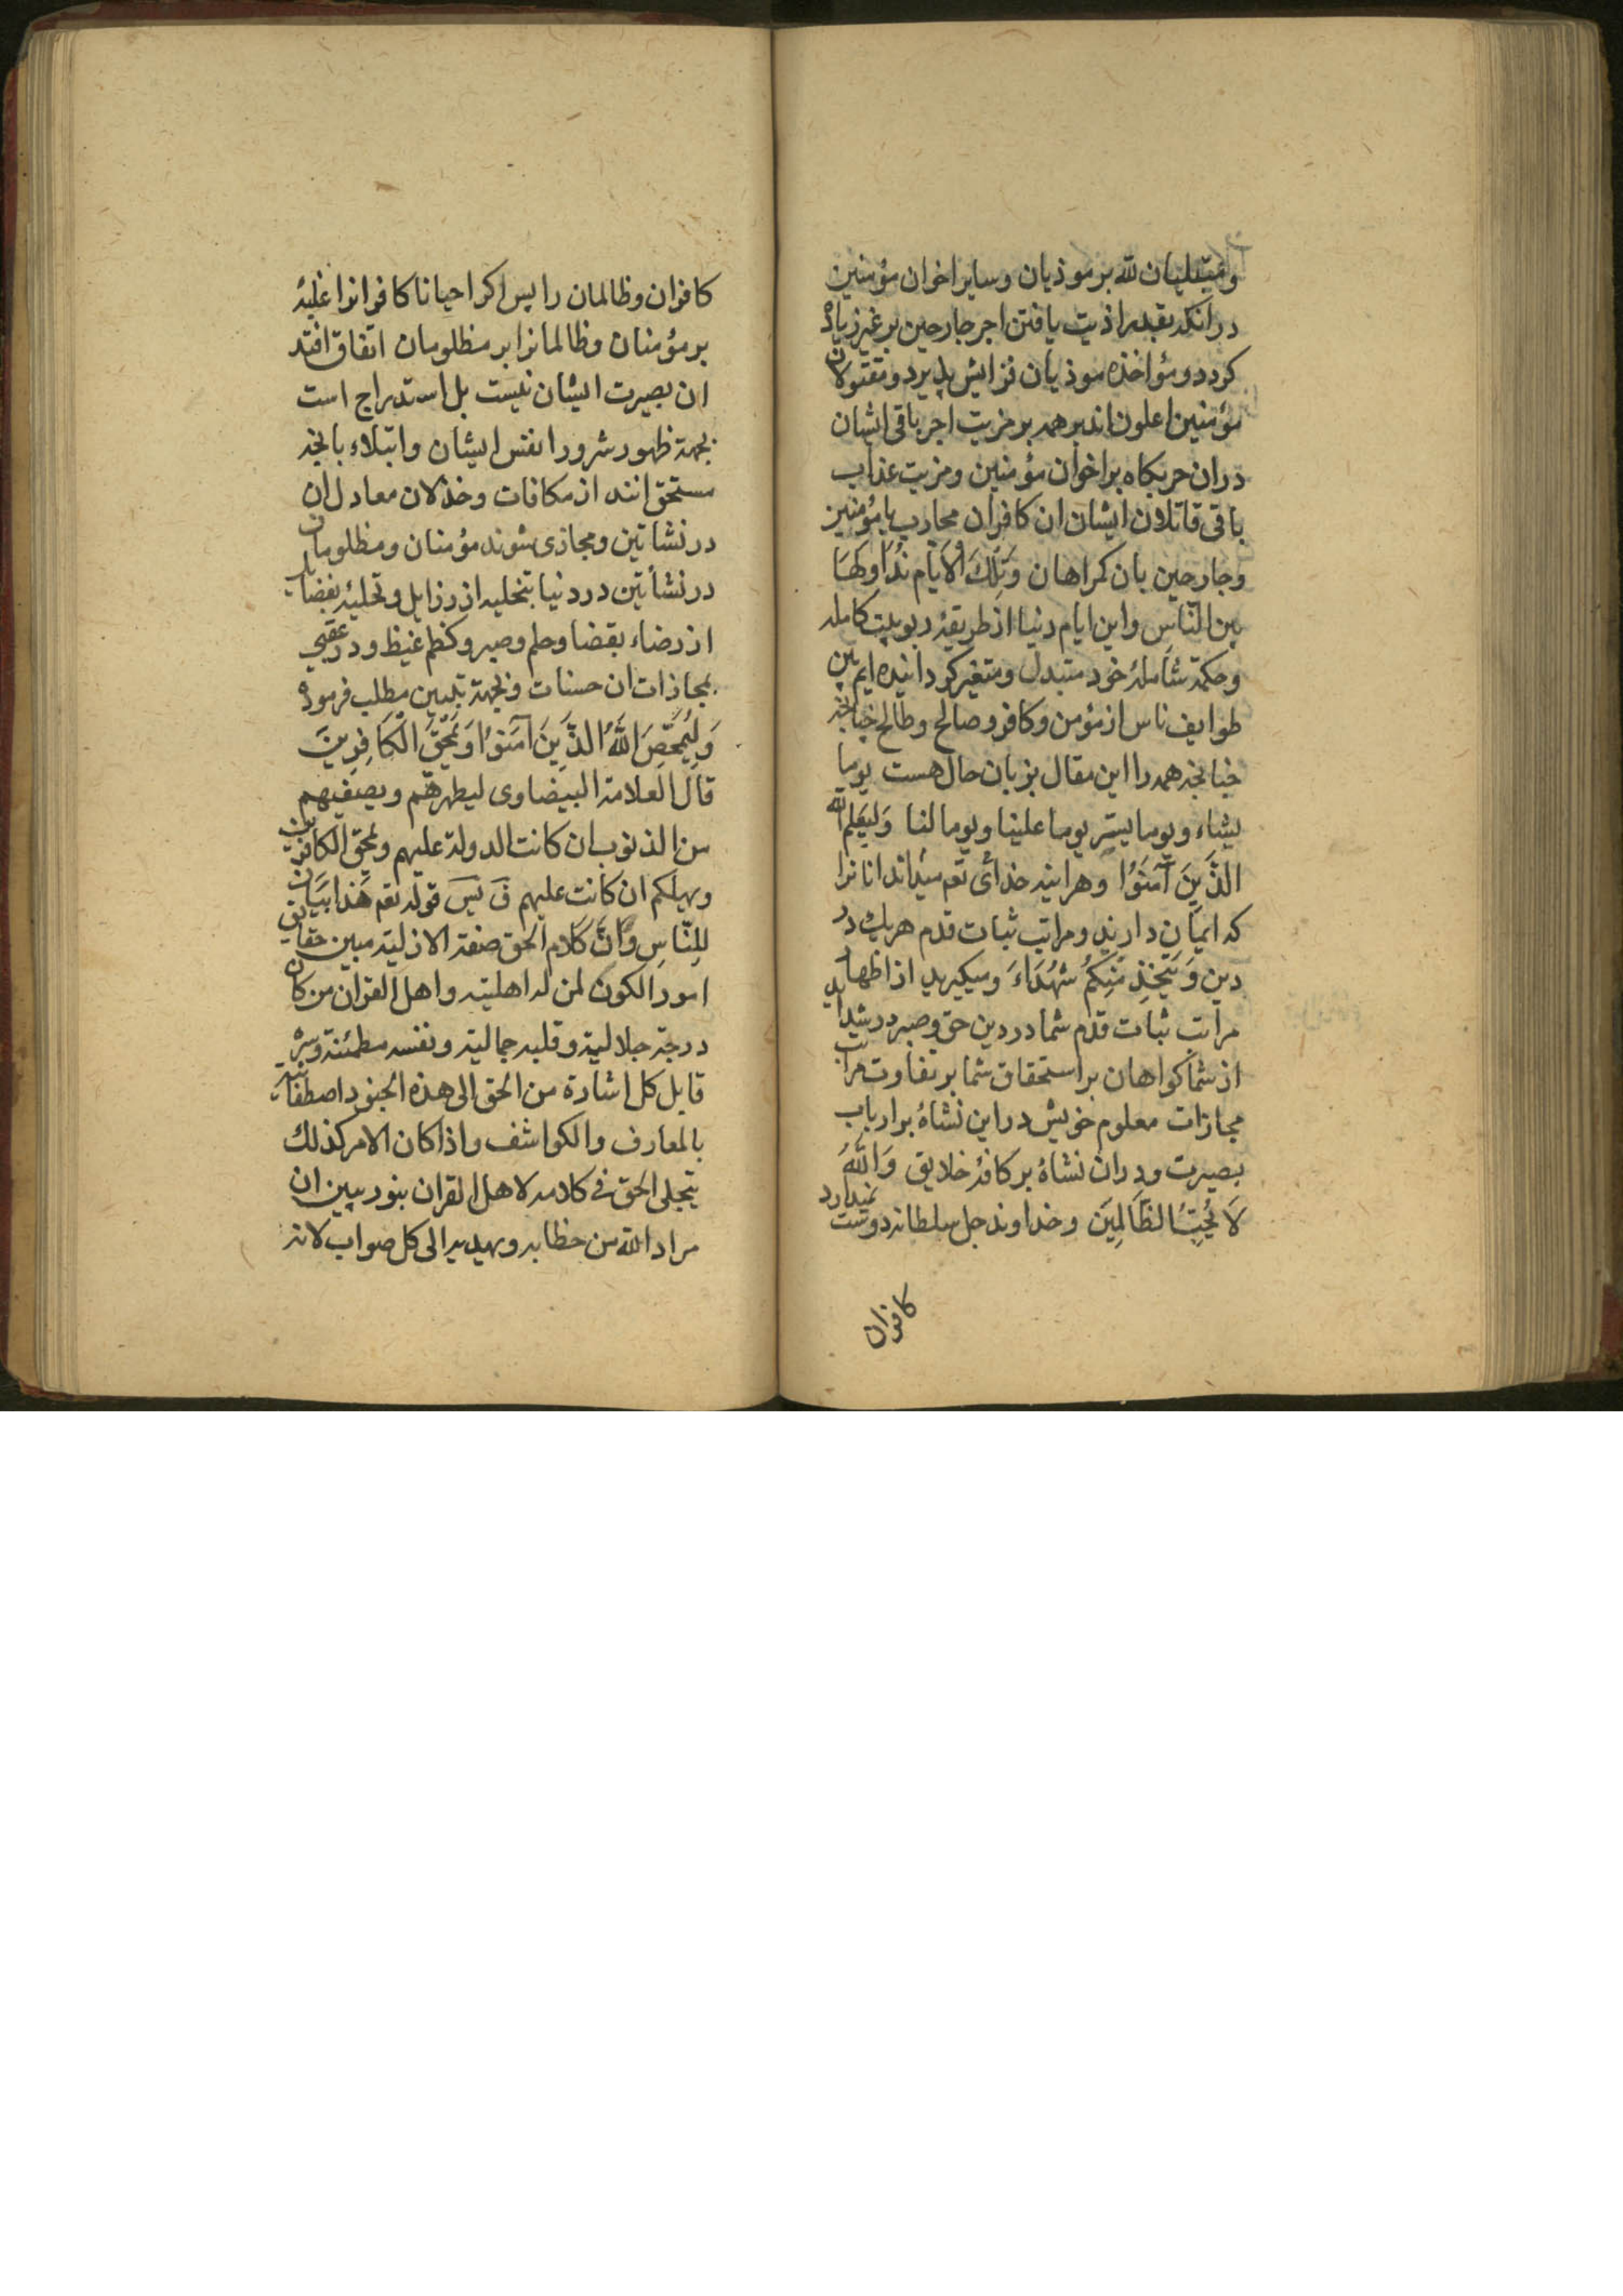 ومبتلیان لله بر موذیان وسایر اخوان مؤمنین
در انکه بقدر اذیت یافتن اجر جارحین بر غیر زیاده
کردد ومؤاخذه موذیان فزایش پذیرد ومقتولان
مؤمنین اعلون اند بر همه بر مزیت اجر باقی ایشان
در ان حربکاه بر اخوان مؤمنین ومزیت عذاب
باقی قاتلان ایشان ان کافران محارب با مؤمنین
وجارحین بان کمراهان وَتِلْكَ الْاَيَّام نُدَاوِلهَا
بين النّاسِ واین ایام دنیا از طریقه ربوبیت کامله
وحکمة شامله خود متبدل ومتغیر کردانیده ایم بین
طوایف ناس از مؤمن وکافر وصالح وطالح چنانچه
چنانچه همه را این مقال بزبان حال هست یوما
یشاء ویوما یسر یوما علینا ویوما لنا وَلِيَعْلَمَ اللّٰه
الَّذِينَ آمَنُوْا وهراینه خدای تعم میداند انانرا
که ایمان دارند ومراتب ثبات قدم هریك در
دین وَيَتَّخِذ مِنْكُمْ شُهَدَاءَ ومیکیرد از اظهار
مراتب ثبات قدم شما در دین حق وصبر در شداید
از شما کواهان بر استحقاق شما بر تفاوت مراتب
مجازات معلوم خویش در این نشاهٔ بر ارباب
بصیرت ودران نشاهٔ بر کافهٔ خلایق وَاللّٰهُ
لَا يُحِبُّ الظَّالِمِينَ وخداوند جل سلطانه دوست نمیدارد
کافران
کافران وظالمان را پس اکر احیانا کافرانرا غلبهٔ
بر مؤمنان وظالمانرا بر مظلومان اتفاق افتد
ان بصیرت ایشان نیست بل استدراج است
بجهة ظهور شرور انفس ایشان وابتلاء بانچه
مستحق انند از مکافات وخذلان معادل ان
در نشاتین ومجازی شوند مؤمنان ومظلومان
در نشأتین در دنیا بتخلیه از رذایل وتحلیهٔ بفضایل
از رضاء بقضا وحلم وصبر وکظم غیظ ودر عقبی
بمجازات ان حسنات وبجهة تبیین مطلب فرموده
وَلِيُمَحِّصَ اللّٰهُ الَّذِينَ آمَنُوْا وَيَمْحَقَ الْكَافِرِينَ
قال العلامة البیضاوی لیطهرهم ویصفیهم
من الذنوب ان کانت الدولة علیهم ویمحق الکافرین
ویهلکهم ان کانت علیهم قوله تعم هَذَا بَيَان
لِلنَّاسِ وَانَّ کلام الحق صفة الازلیة مبین حقایق
امور الکون لمن له اهلیته واهل القران من کان
درجة جلالیة وقلبه جمالیة ونفسه مطمئنة وسره
قابل کل اشارة من الحق الی هذه الجنود
بالمعارف والکواشف واذا کان الامر کذلك
یتجلی الحق فی کلامه لاهل القران بنور یبین ان
مراد الله من خطابه ویهدیه الی کل صواب لانه